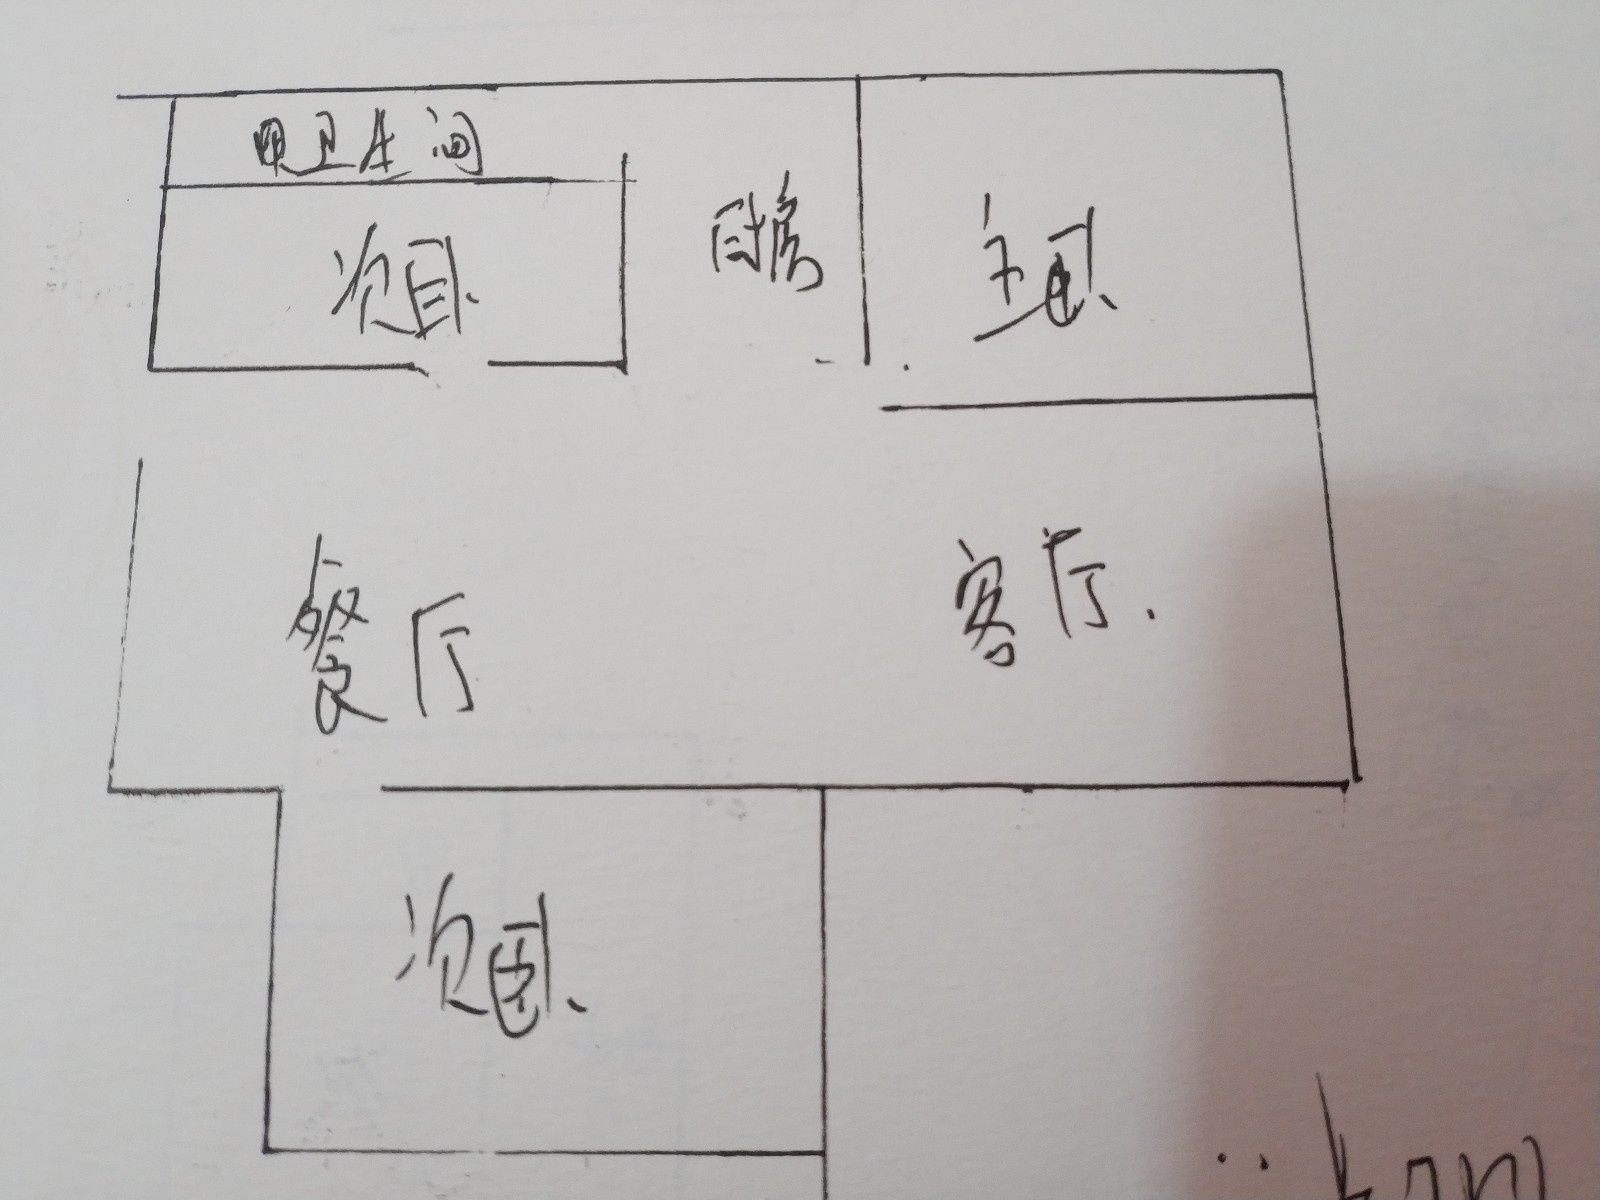 卫生间
次卧
厨房
主卧
餐厅
客厅
次卧